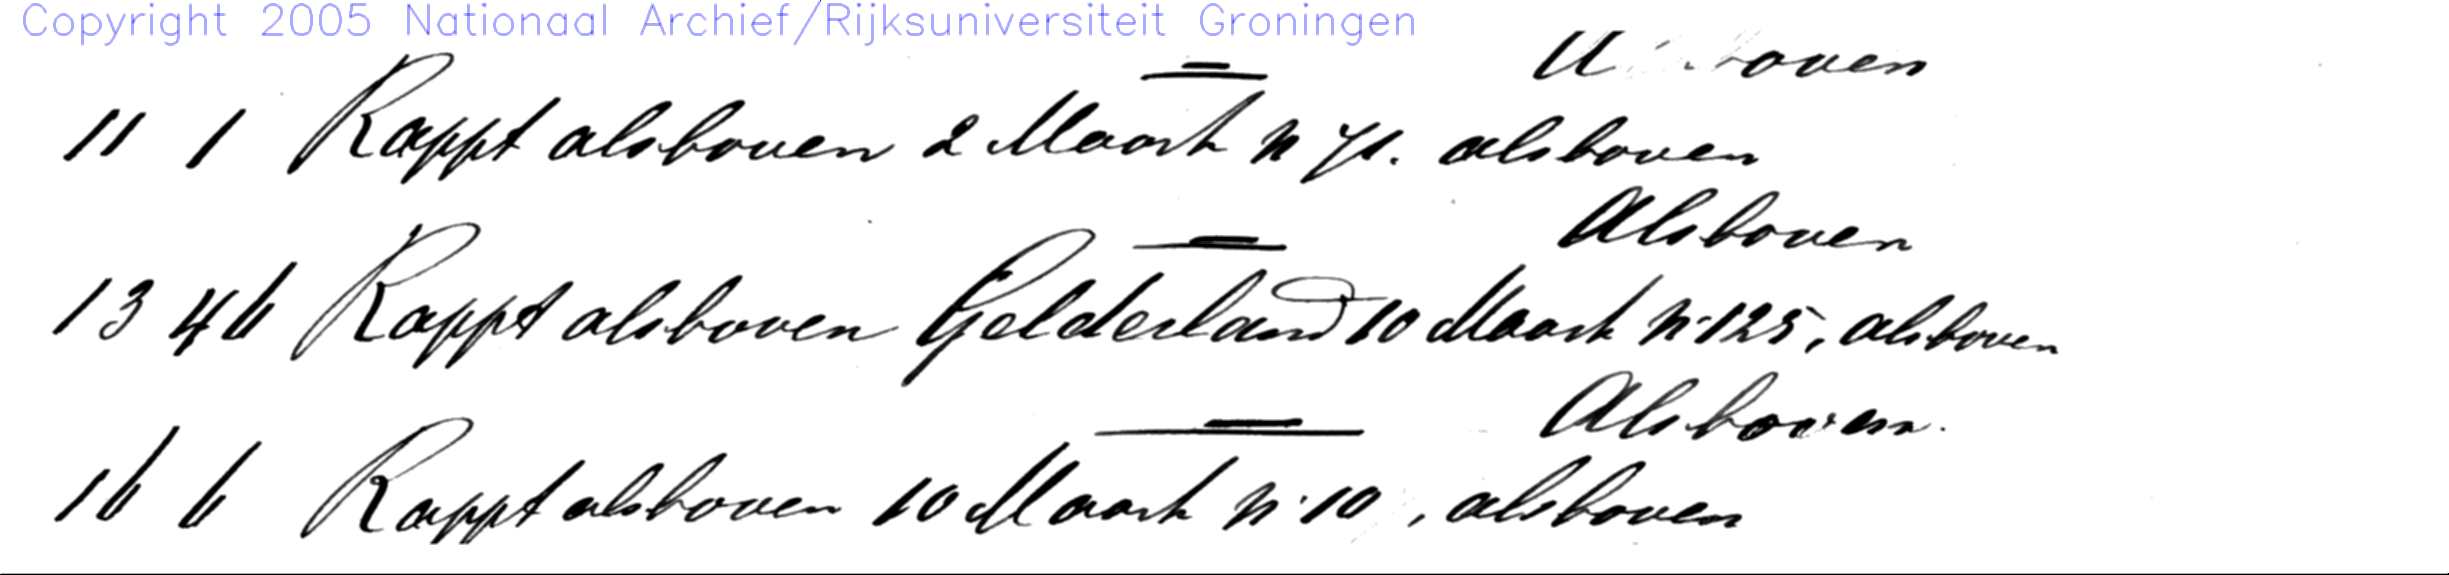 Copyright 2005 Nationaal Archief/Rijksuniversiteit Groningen
11 1 Rappt alsboven 2 Maart n 71. alsboven
Alsboven
13 46 Rappt alsboven Gelderland 10 Maart n 125, alsboven
Alsboven
16 6 Rappt alsboven 10 Maart n 10, alsboven